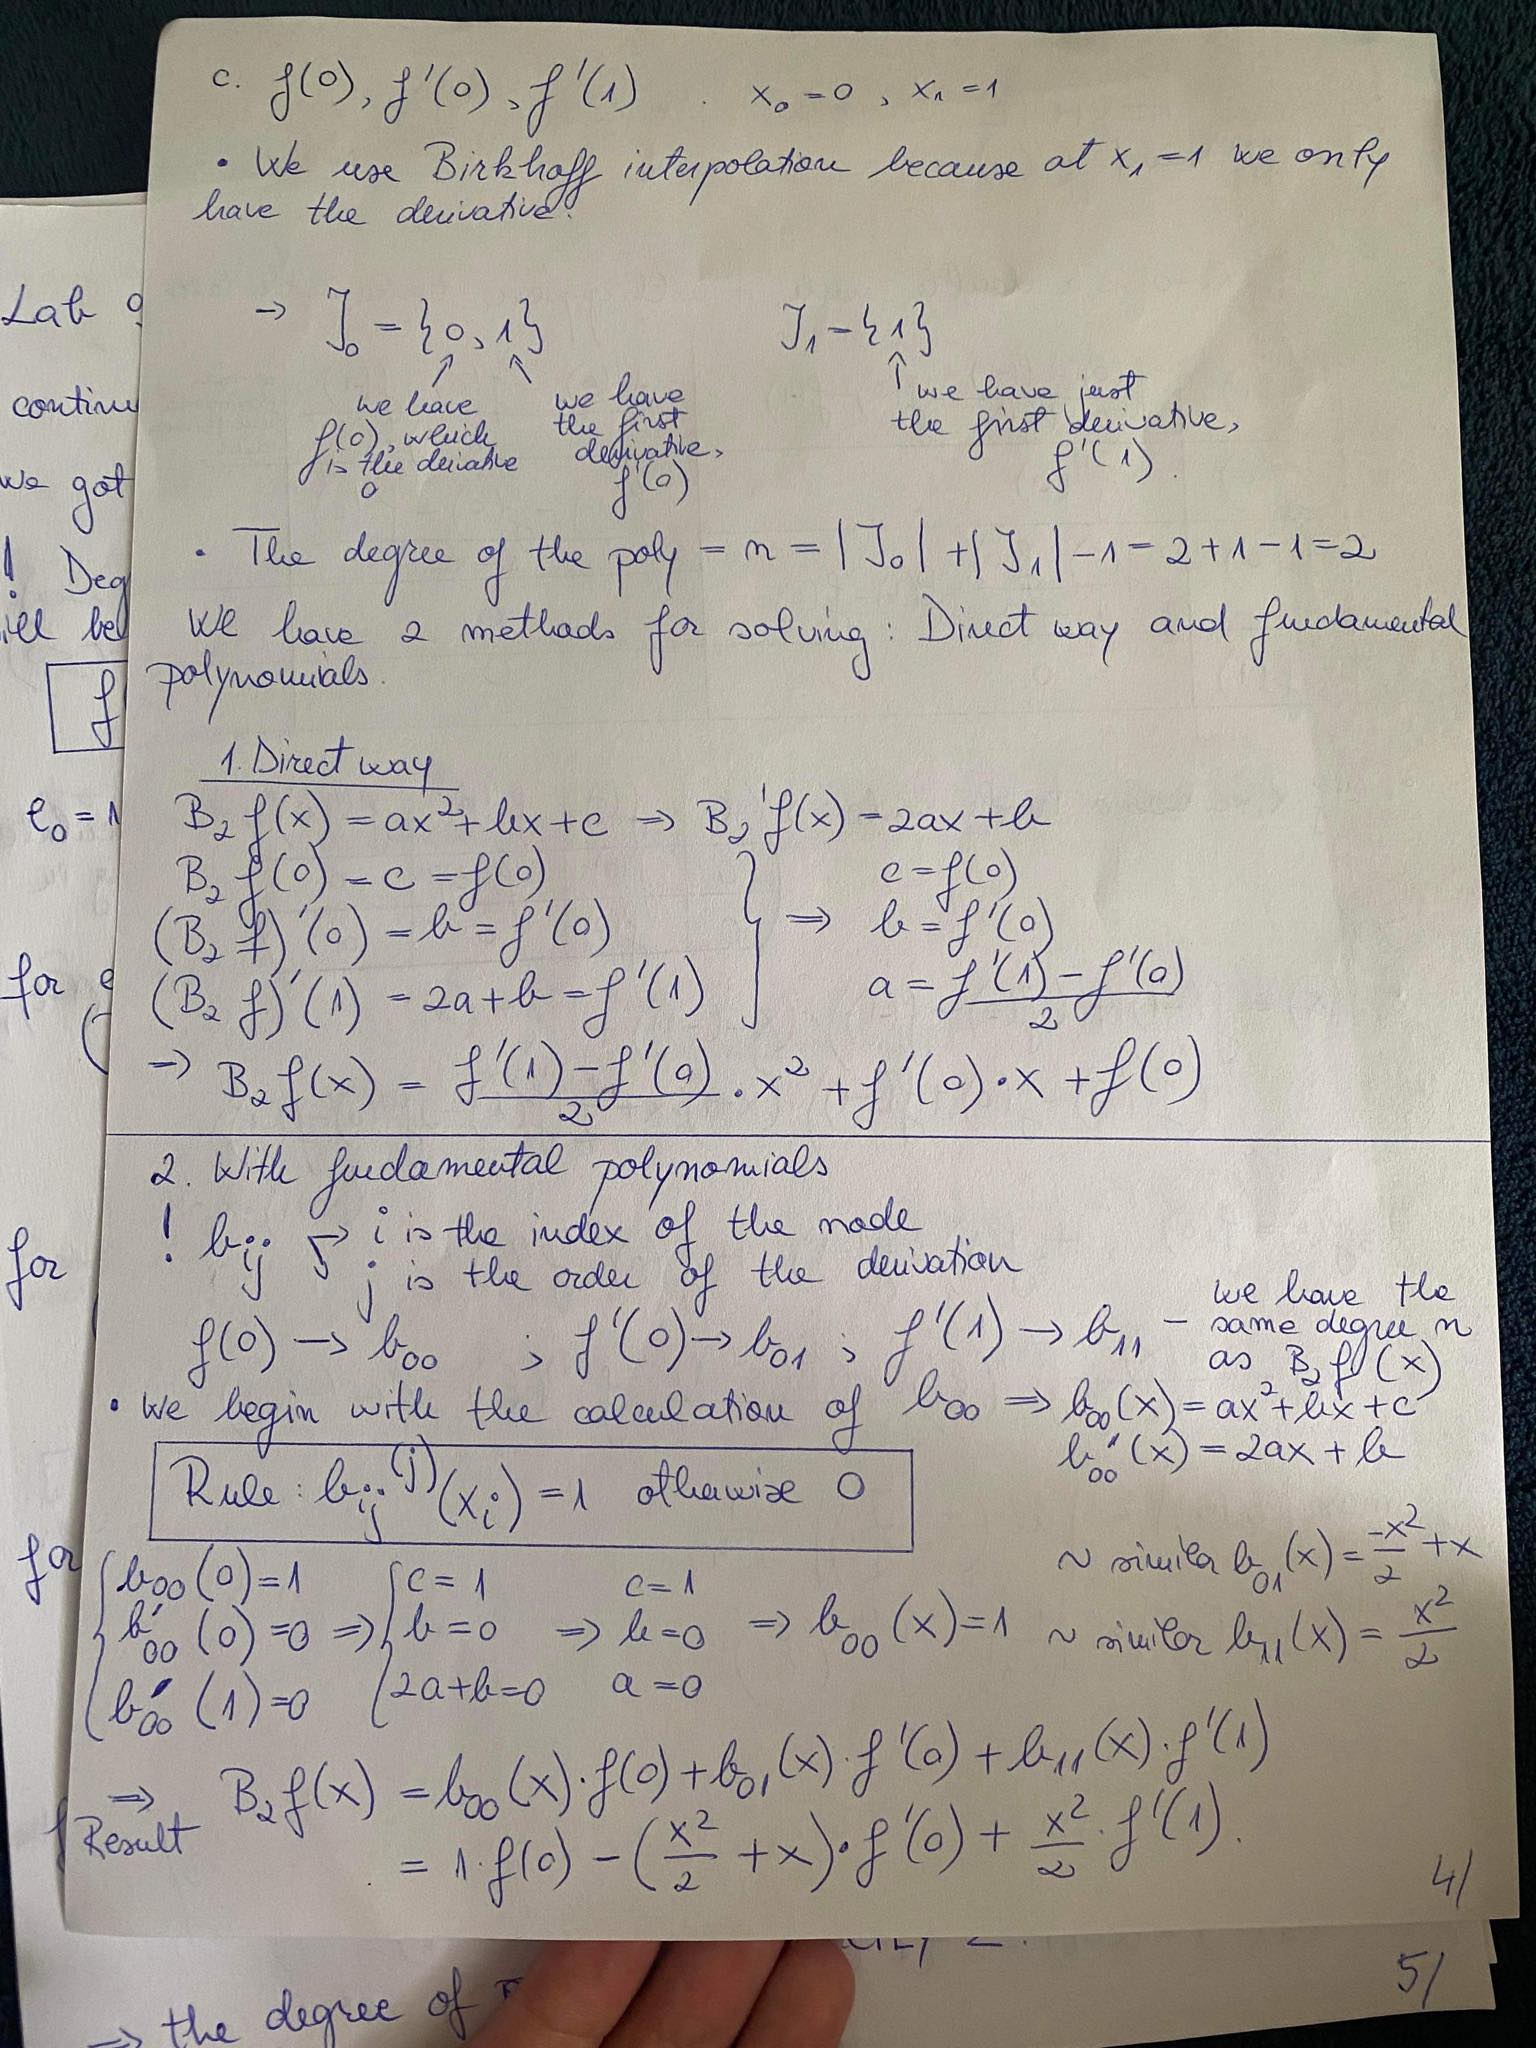 c. f(0), f'(0), f'(1) . x₀ = 0, x₁ = 1
• We use Birkhoff interpolation because at x₁ = 1 we only
have the derivative.
→ I₀ = {0, 1} I₁ = {1}
we have f(0), which is the deivative 0
we have the first derivative, f'(0)
we have just the first derivative, f'(1).
• The degree of the poly = n = |I₀| + |I₁| - 1 = 2 + 1 - 1 = 2
We have 2 methods for solving: Direct way and fundamental
polynomials.
1. Direct way
B₂f(x) = ax² + bx + c ⇒ B₂'f(x) = 2ax + b
B₂f(0) = c = f(0)
(B₂f)'(0) = b = f'(0)
(B₂f)'(1) = 2a + b = f'(1)
} ⇒ c = f(0)
b = f'(0)
a = (f'(1) - f'(0))/2
⇒ B₂f(x) = (f'(1) - f'(0))/2 · x² + f'(0) · x + f(0)
2. With fundamental polynomials
! bᵢⱼ → i is the index of the node
→ j is the order of the derivation
f(0) → b₀₀ ; f'(0) → b₀₁ ; f'(1) → b₁₁ - we have the
same degree n
as B₂f(x)
• We begin with the calculation of b₀₀ ⇒ b₀₀(x) = ax² + bx + c
b₀₀'(x) = 2ax + b
Rule: bᵢⱼ⁽ʲ⁾(xᵢ) = 1 otherwise 0
~ similar b₀₁(x) = -x²/2 + x
~ similar b₁₁(x) = x²/2
{ b₀₀(0) = 1 { c = 1 c = 1
b'₀₀(0) = 0 ⇒ b = 0 ⇒ b = 0 ⇒ b₀₀(x) = 1
b'₀₀(1) = 0 2a + b = 0 a = 0
⇒ B₂f(x) = b₀₀(x) · f(0) + b₀₁(x) · f'(0) + b₁₁(x) · f'(1)
Result
= 1 · f(0) - (x²/2 + x) · f'(0) + x²/2 · f'(1).
4/
Lab 9
we got
! Deg
ill be
f
e₀ = 1
for
for
for
5/
⇒ the degree of